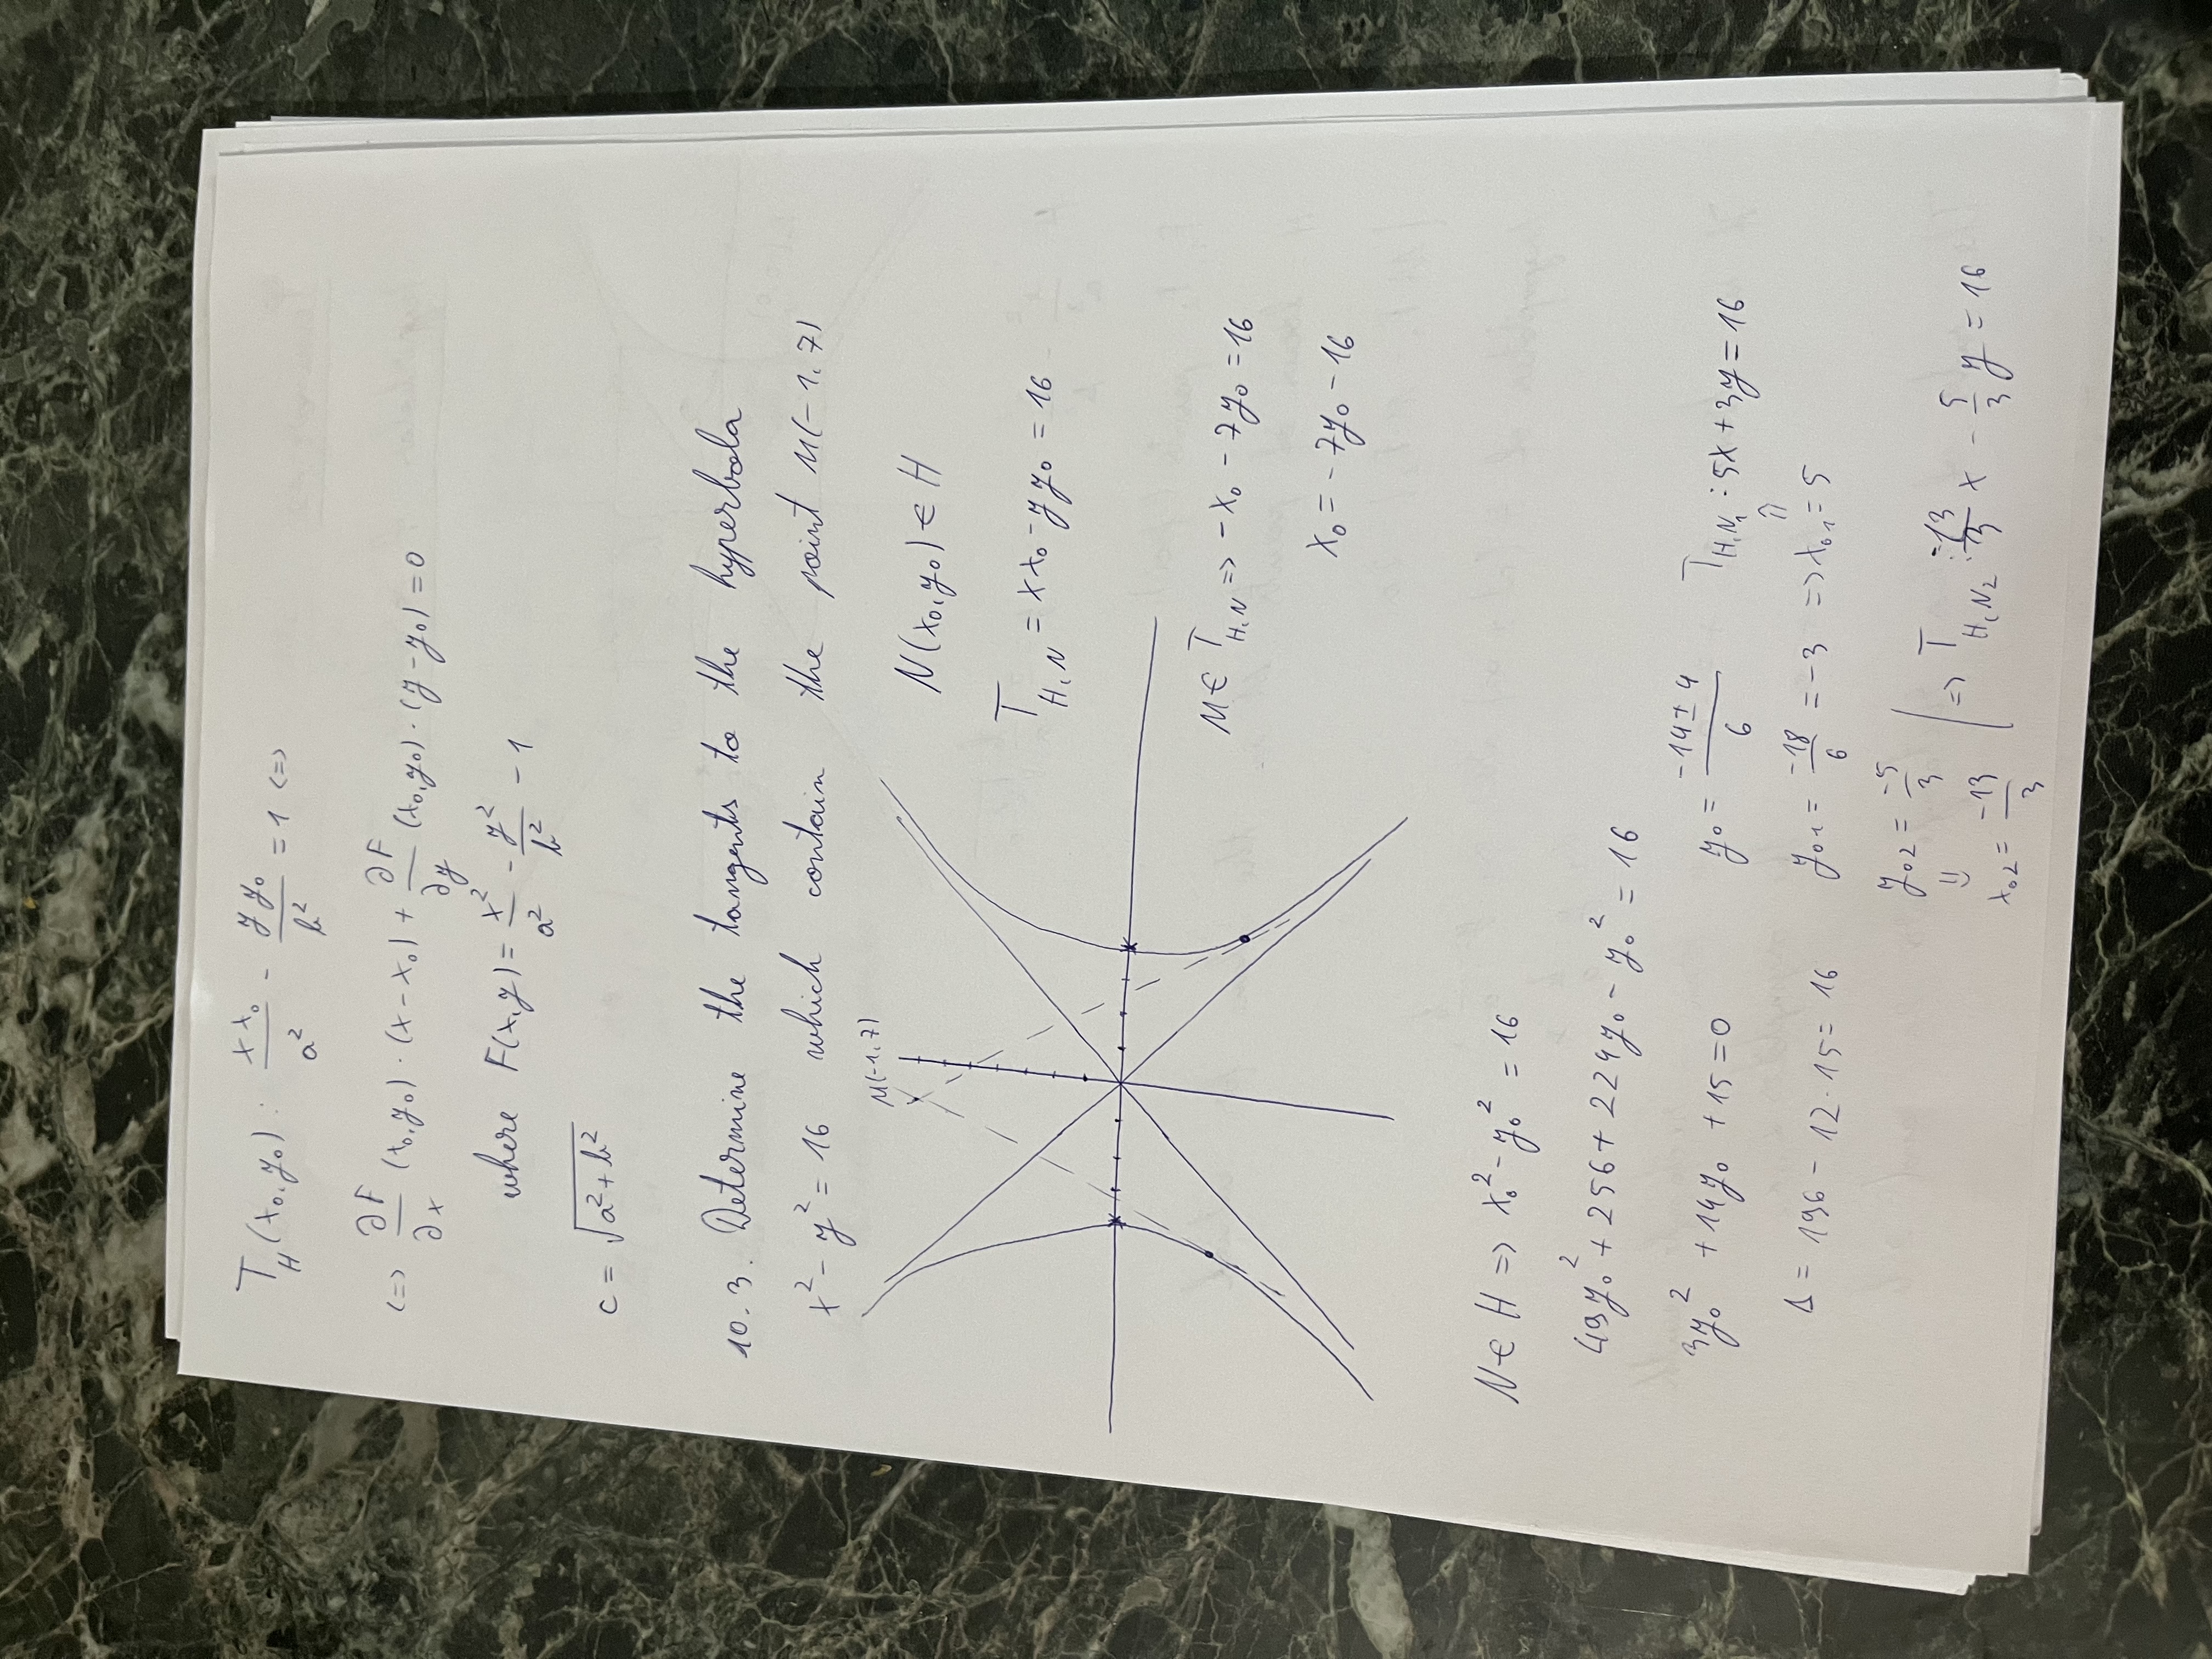 T_H(x₀,y₀): xx₀/a² - yy₀/b² = 1 <=>
<=> ∂F/∂x (x₀,y₀)·(x-x₀) + ∂F/∂y (x₀,y₀)·(y-y₀) = 0
where F(x,y) = x²/a² - y²/b² - 1
c = √(a²+b²)
10.3. Determine the tangents to the hyperbola
x² - y² = 16 which contain the point M(-1,7)
M(-1,7)
N(x₀,y₀) ∈ H
T_H,N = xx₀ - yy₀ = 16
M ∈ T_H,N => -x₀ - 7y₀ = 16
x₀ = -7y₀ - 16
N ∈ H => x₀² - y₀² = 16
49y₀² + 256 + 224y₀ - y₀² = 16
3y₀² + 14y₀ + 15 = 0
Δ = 196 - 12·15 = 16
y₀ = (-14 ± 4)/6
T_H,N₁: 5x + 3y = 16
⇑
y₀₁ = -18/6 = -3 => x₀₁ = 5
y₀₂ = -5/3
⇓
x₀₂ = -13/3
| => T_H,N₂: -13/3 x - 5/3 y = 16